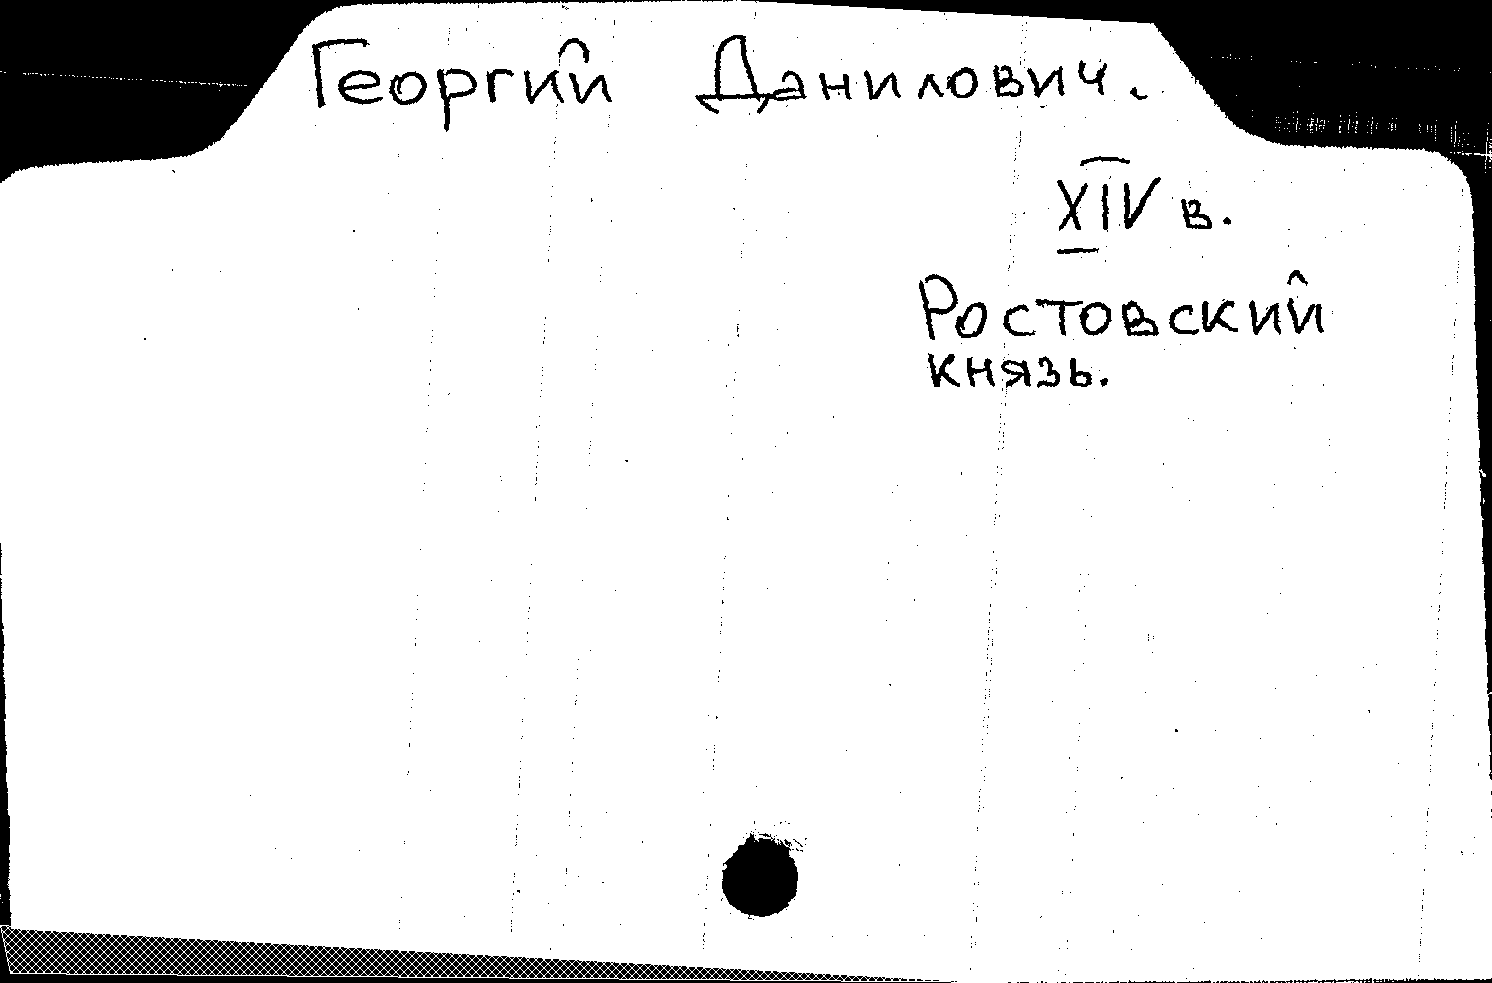 Георгий Данилович.
XIV в.
Ростовский
князь.